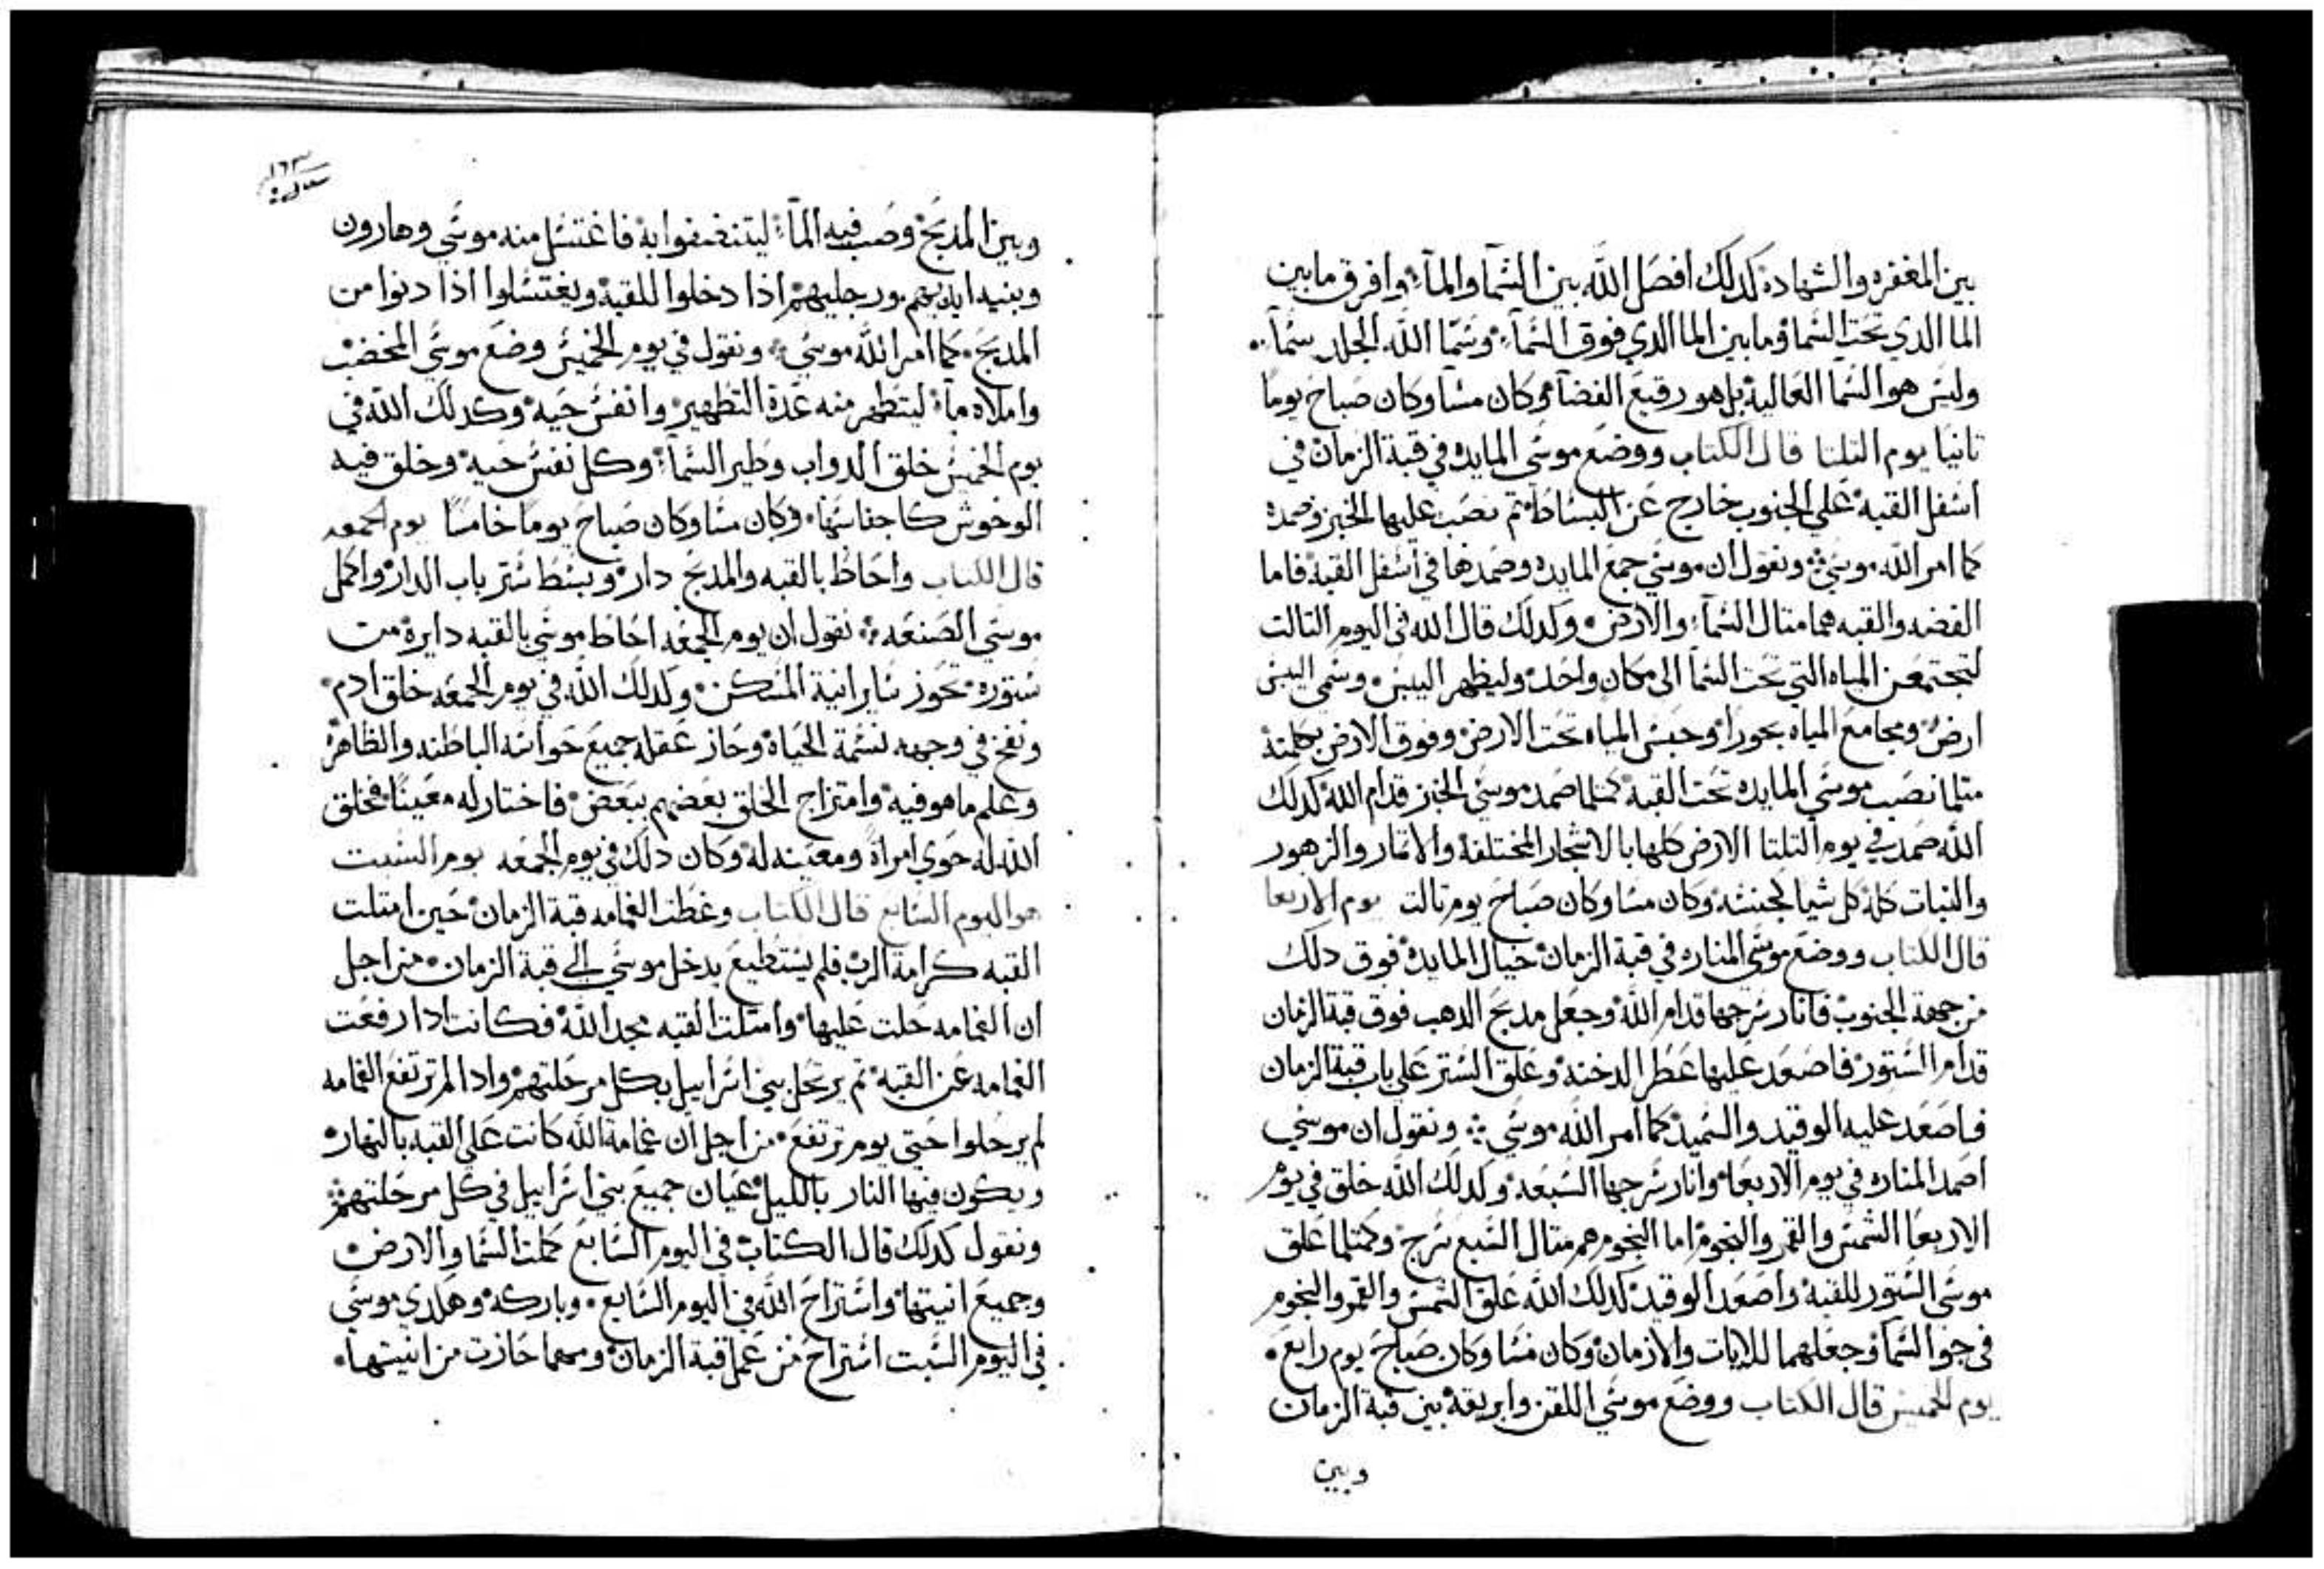 بين المغفره والشهاده كدلك افصل الله بين السما والما وافرق مابين
الما الدي تحت السما ومابين الما الدي فوق السما وسما الله الجلد سما
وليس هو السما العاليه بل هو رقيع الفضا وكان مسا وكان صباح يوما
تانيا يوم التلتا قال الكتاب ووضع موسي المايده في قبة الزمان في
اسفل القبه علي الجنوب خارج عن البساط تم نصب عليها الخبز وصمده
كما امر الله موسي ونقول ان موسي جمع المايده وصمدها في اسفل القبه فاما
الفضه والقبه هما متال السما والارض وكدلك قال الله في اليوم التالت
لتجتمعن المياه التي تحت السما الي مكان واحد وليظهر اليبس وسمي اليبس
ارض ومجامع المياه بحورا وحبس المياه تحت الارض وفوق الارض بكلمته
متلما نصب موسي المايده تحت القبه كمتلما صمد موسي الخبز قدام الله كدلك
الله صمد في يوم التلتا الارض كلها بالاشجار المختلفه والاتمار والزهور
والنبات كله كل شيا لجنسه وكان مسا وكان صباح يوم تالت يوم الاربعا
قال الكتاب ووضع موسي المناره في قبة الزمان حيال المايده فوق دلك
من جهة الجنوب فانار سرجها قدام الله وجعل مدبح الدهب فوق قبة الزمان
قدام الستور فاصعد عليها عطر الدخنه وعلق الستر علي باب قبة الزمان
فاصعد عليه الوقيد والسميد كما امر الله موسي ونقول ان موسي
اصمد المناره في يوم الاربعا وانار سرجها السبعه وكدلك الله خلق في يوم
الاربعا الشمس والقمر والنجوم اما النجوم هم متال السبع سرج وكمتلما علق
موسي الستور للقبه واصعد الوقيد كدلك الله علق الشمس والقمر والنجوم
في جو السما وجعلهما للايات والازمان وكان مسا وكان صباح يوم رابع
يوم الخميس قال الكتاب ووضع موسي اللقن وابريقه بين قبة الزمان
وبين
١٦٣
وبين المدبح وصب فيه الما ليتنضفوا به فاغتسل منه موسي وهارون
وبنيه ايديهم ورجليهم ادا دخلوا للقبه ويغتسلوا ادا دنوا من
المدبح كما امر الله موسي ونقول في يوم الخميس وضع موسي المخضب
واملاه ما ليتطهر منه عدة التطهير وانفس حيه وكدلك الله في
يوم الخميس خلق الدواب وطير السما وكل نفس حيه وخلق فيه
الوحوش كاجناسها وكان مسا وكان صباح يوما خامسا يوم الجمعه
قال الكتاب واحاط بالقبه والمدبح دار وبسط ستر باب الدار واكمل
موسي الصنعه نقول ان يوم الجمعه احاط موسي بالقبه دايرة من
ستوره تحوز ساير انية المسكن وكدلك الله في يوم الجمعه خلق ادم
ونفخ في وجهه نسمة الحياة وحاز عقله جميع حواسه الباطنه والظاهره
وعلم ما هو فيه وامتزاج الخلق بعضهم ببعض فاختار له معينا فخلق
الله له حوي امراة ومعينه له وكان دلك في يوم الجمعه يوم السبت
هو اليوم السابع قال الكتاب وغطت الغمامه قبة الزمان حين امتلت
القبه كرامة الرب فلم يستطيع يدخل موسي الي قبة الزمان من اجل
ان الغمامه حلت عليها وامتلت القبه مجد الله فكانت ادا رفعت
الغمامه عن القبه تم يرتحل بني اسراييل بكل مرحلتهم وادا لم ترتفع الغمامه
لم يرحلوا حتي يوم ترتفع من اجل ان غمامة الله كانت علي القبه بالنهار
ويكون فيها النار بالليل عيان جميع بني اسراييل في كل مرحلتهم
ونقول كدلك قال الكتاب في اليوم السابع كملت السما والارض
وجميع انيتها واستراح الله في اليوم السابع وباركه وهكدي موسي
في اليوم السبت استراح من عمل قبة الزمان ومهما حازت من انيتها